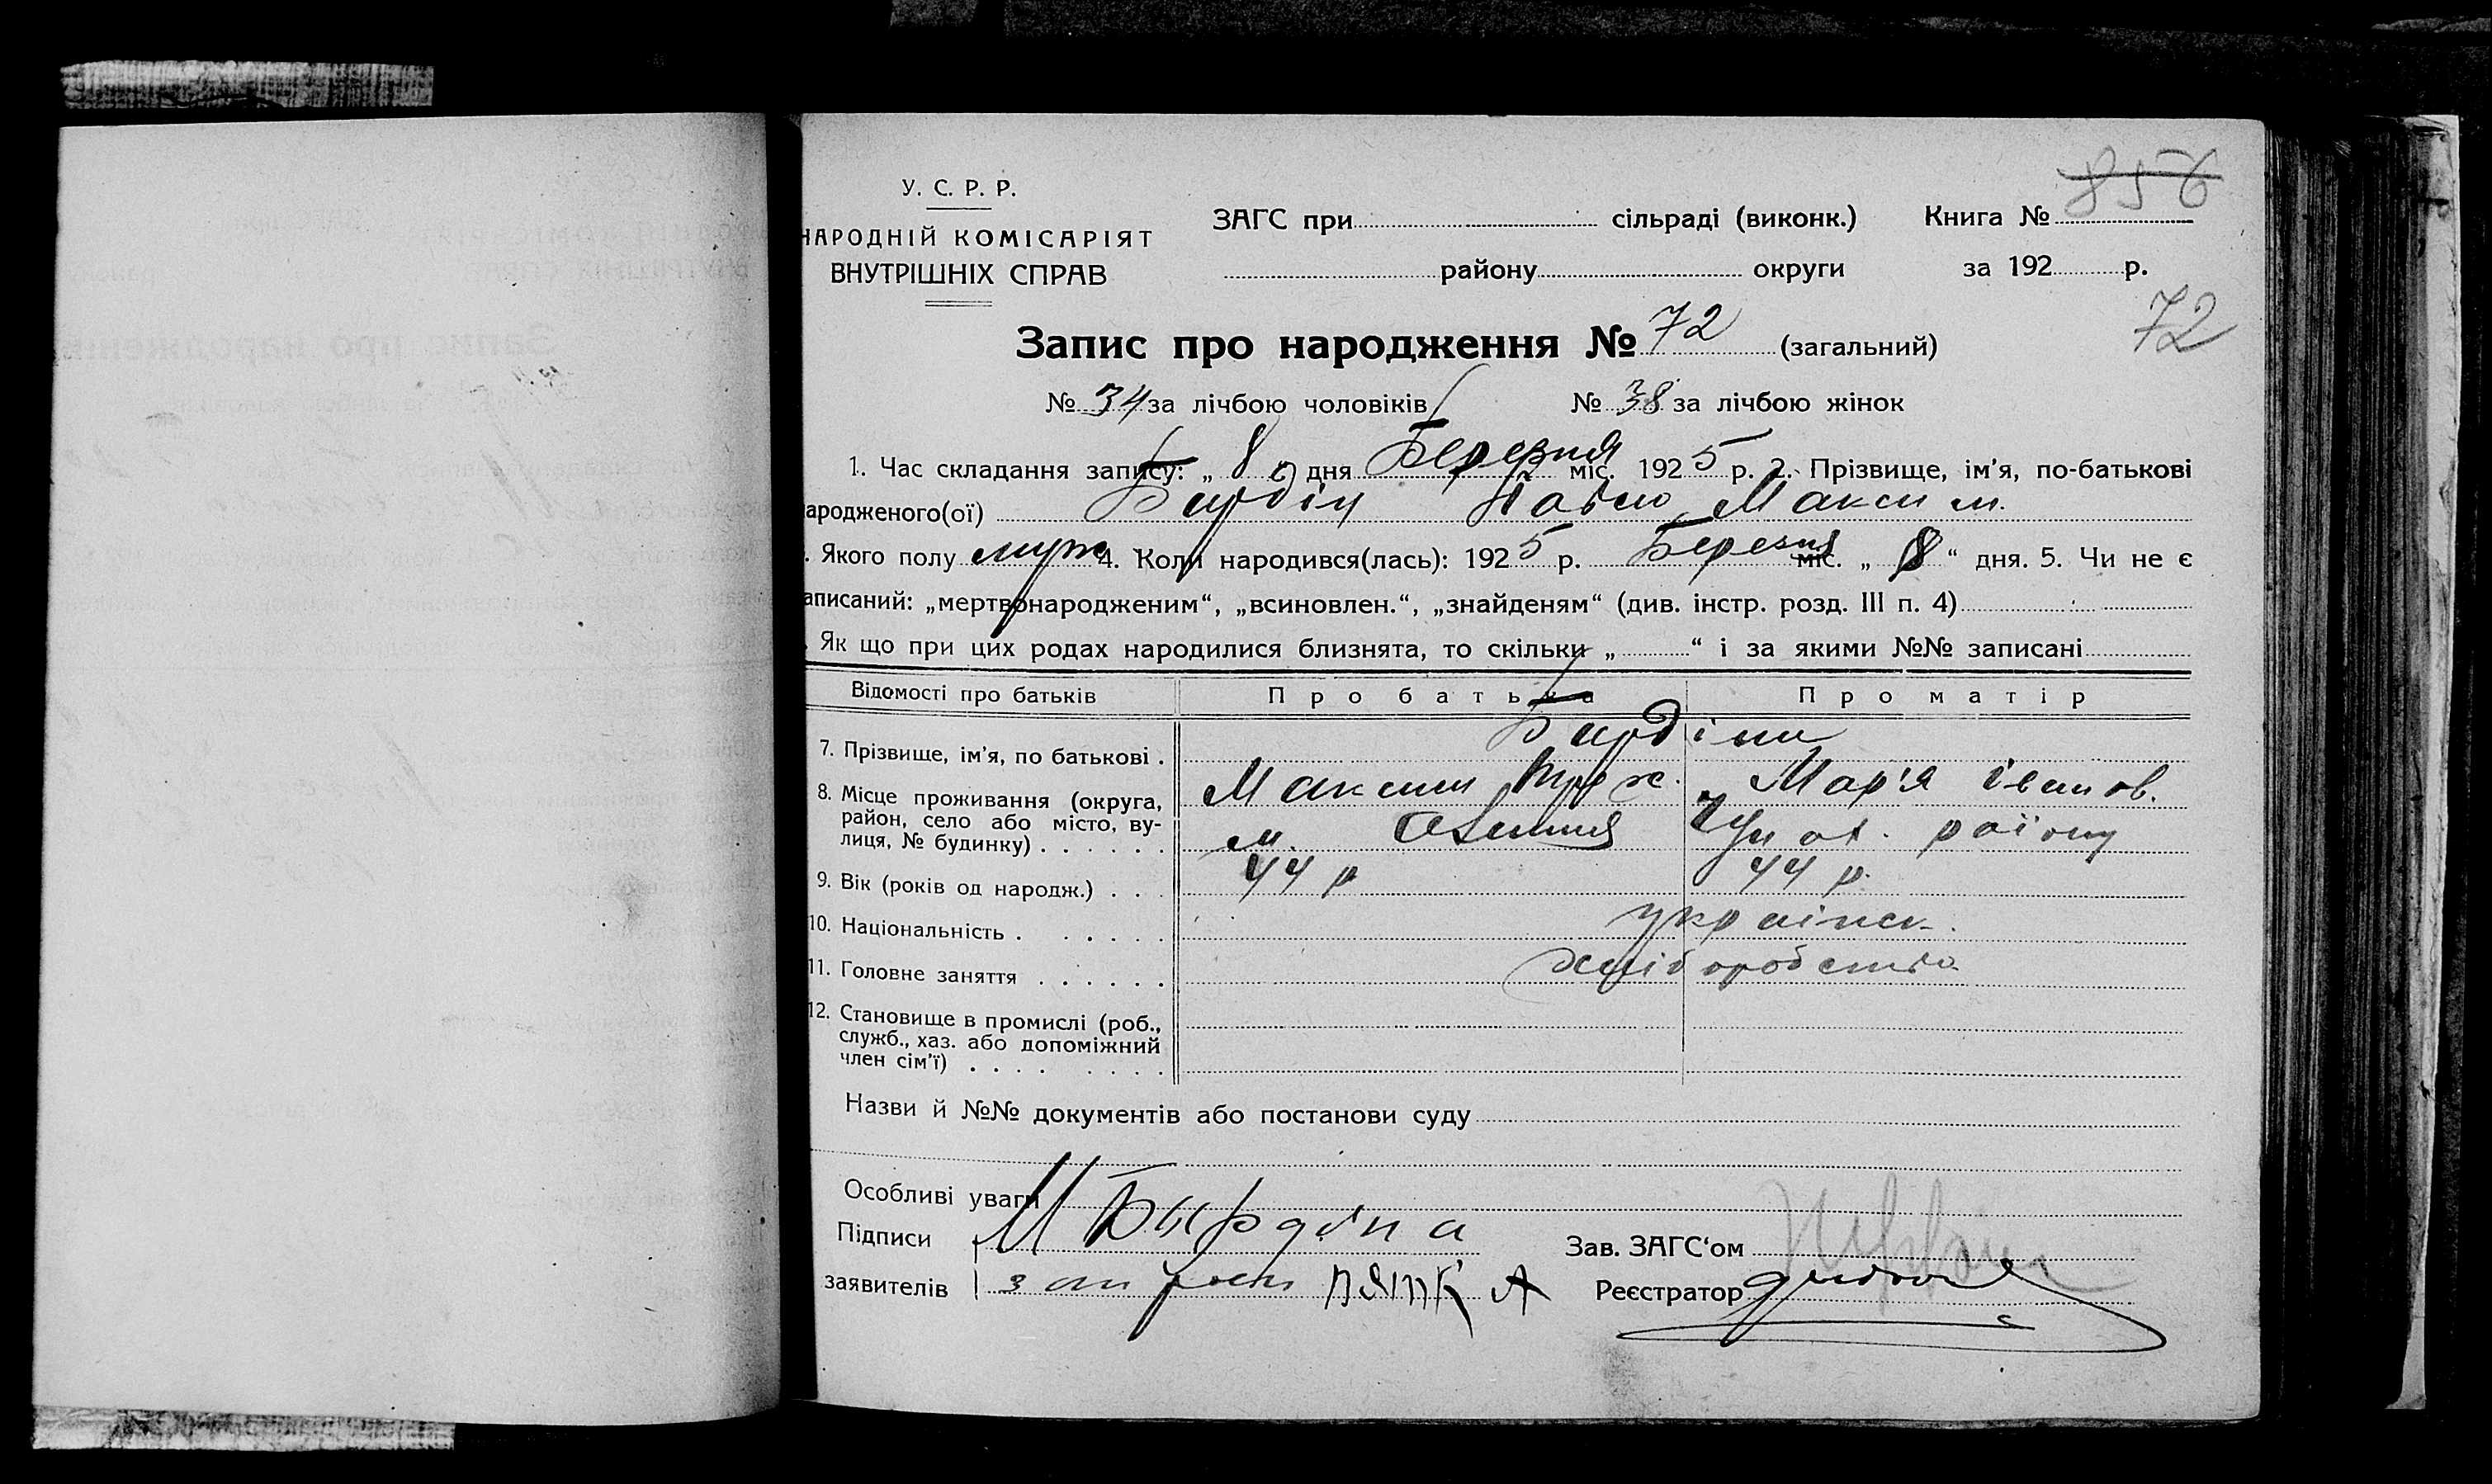 856
У. С. Р. Р.
НАРОДНІЙ КОМІСАРІЯТ
ВНУТРІШНІХ СПРАВ
ЗАГС при сільраді (виконк.) Книга №
району округи за 192 р.
72
Запис про народження № 72 (загальний)
№ 34 за лічбою чоловіків № 38 за лічбою жінок
1. Час складання запису: „ 8 “ дня Березня міс. 1925 р. 2. Прізвище, ім’я, по-батькові
ародженого(ої) Бурдін Павло Максим.
. Якого полу муж 4. Коли народився(лась): 1925 р. Березня міс. „ 8 “ дня. 5. Чи не є
аписаний: „мертвонародженим“, „всиновлен.“, „знайденям“ (див. інстр. розд. III п. 4)
. Як що при цих родах народилися близнята, то скільки „ “ і за якими №№ записані
Відомості про батьків Про батька Про матір
7. Прізвище, ім’я, по батькові . Бурдіни
Максим Мар'я Іванов.
8. Місце проживання (округа, район, село або місто, вулиця, № будинку) м. району
9. Вік (років од народж.) 44 р 44 р.
10. Національність українськ.
11. Головне заняття хліборобство
12. Становище в промислі (роб., служб., хаз. або допоміжний член сім’ї)
Назви й №№ документів або постанови суду
Особливі уваги
Підписи М Бурдіна Зав. ЗАГС‘ом
заявителів Реєстратор